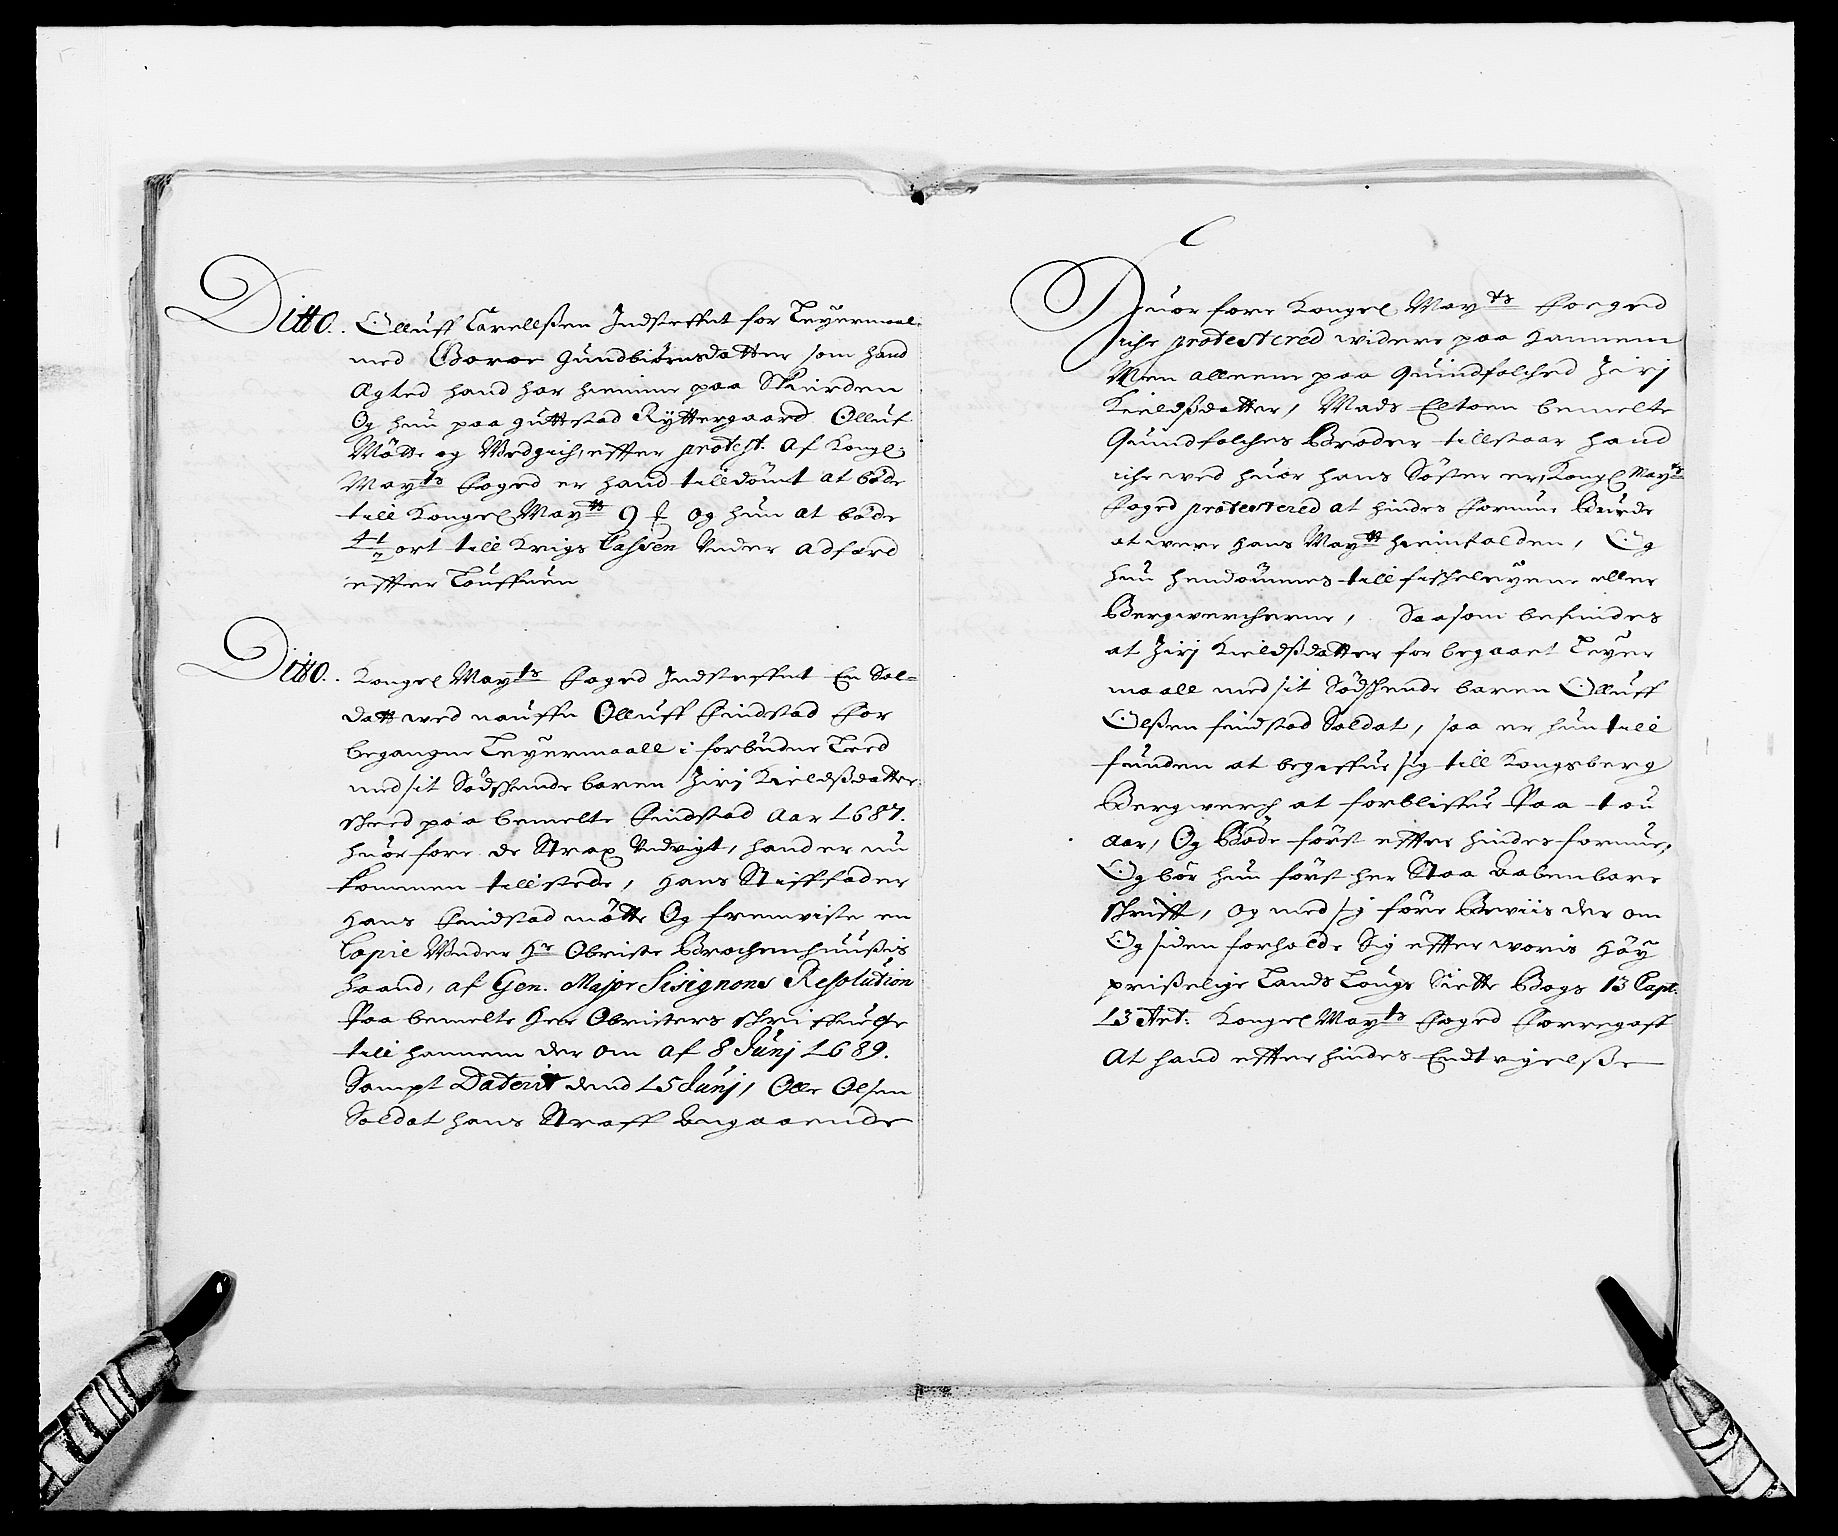 Ditto. Olluff Carellßen Indsteffnt for Leyermaal
med Goroe Gundbiörnsdatter som hand
Agted hand har hiemme paa Skierden
Og hun paa guttestad Ryttergaard Olluf
Mötte og Wedgich, effter protest. Af Kongl:
Mayts Foged er hand tilldömt at böde
till Kongel Maytts 9 og hun at böde
4½ ort till Krigs Cassen Under Adfærd
effter Louffuen
Ditto. Kongel Mayts Foged Indsteffnt En Sol-
datt wed nauffn Olluff Findstad For
begangne Leyermaall i forbudne Leed
med sit Södschinde baren Zirj Kieldßdatter
scheed paa bemelte Findstad Aar 1687.
huorfore de Strax Undvigt, hand er nu
kommen tillstede, Hans Stiffader
Hans Findstad mötte Og fremviste en
Copie Under Hr Obriste Brochenhuußis
haand, af Gen. Major Sisignons Resolution
Paa bemelte Herr Obristers schriffuelße
till hannem der om af 8 Junj 1689.
Sampt Daterit dend 15 Junj, Olle Olsen
Soldat hans Straff Angaaende
Huorfore Kongel Mayts Foeged
iche protestered widere paa Hannem
Men alleene paa Quindfolched Zirj
Kieldßdatter, Mads Eltoen bemelte
Quindfolches Broder tillstaar hand
iche wed huor hans Söster er, Kongl Mayts
Foged protestered at hindes Formue Burde
at were Hans Maytt hiemfalden, Og
hun hendömmes till fischeleyene eller
Bergwercherne, Saasom befindes
at Zirj Kieldßdatter for begaaet Leyer
maall med sit Södschende baren Olluff
Olßen findstad Soldat, saa er hun till
funden at begiffue sig till Kongsberg
Bergwerch at forbliffue Paa tou
Aar, Og Böde först effter hindes formue,
Og bör hun först her Staa Aabenbare
schrifft, og med sig före Bewiis der om
Og siden forholde Sig effter woris Höy
prißelige Lands Lougs Siette Bogs 13 Capt.
13 Art: Kongel Mayts Foged Forregaff
At hand effter hindes Endtvigelße